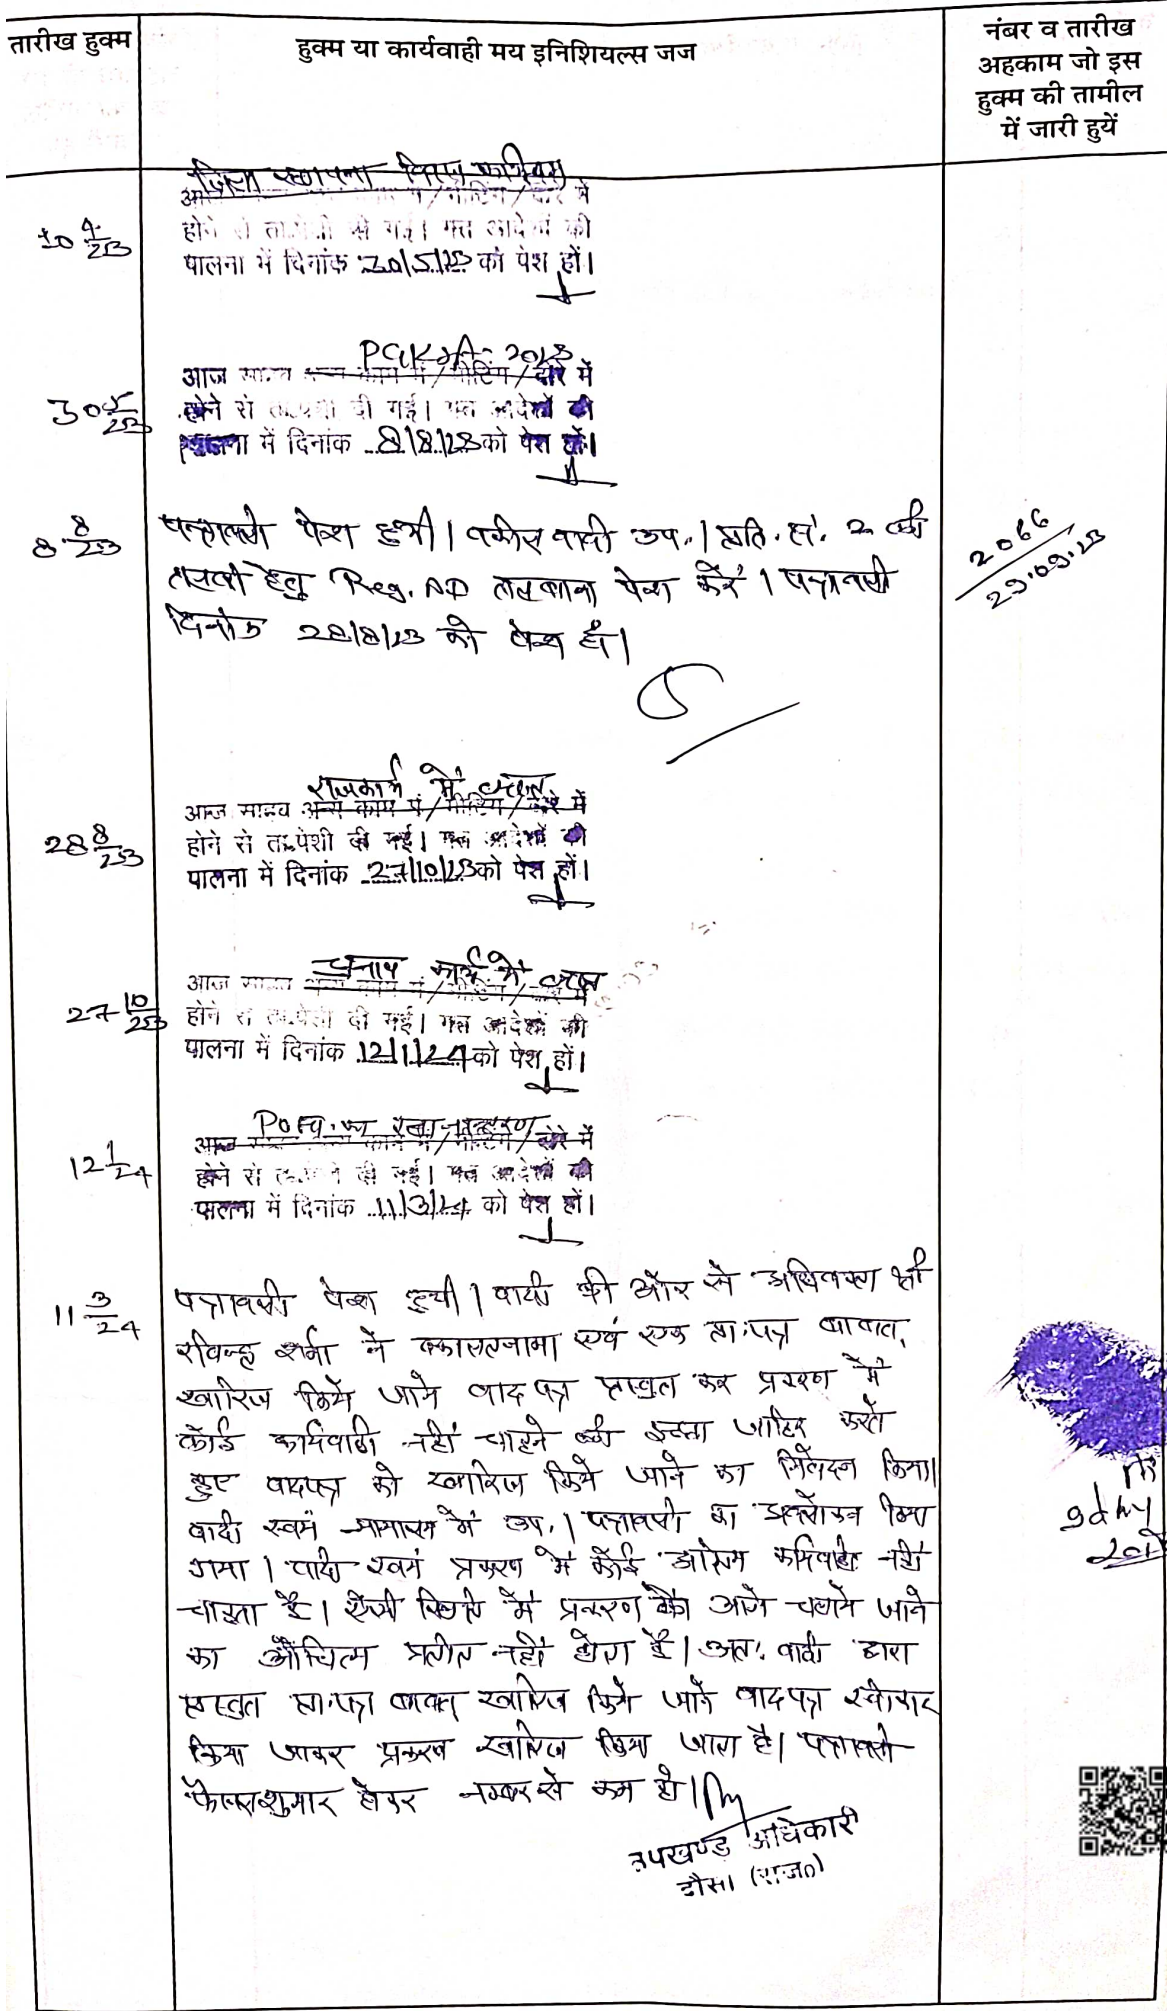 तारीख हुक्म
हुक्म या कार्यवाही मय इनिशियल्स जज
नंबर व तारीख
अहकाम जो इस
हुक्म की तामील
में जारी हुयें
10 4/23
होने से ता.पेशी दी गई। गत आदेशों की
पालना में दिनांक 30/5/23 को पेश हों।
30 5/23
2023
आज साहब अन्य काम में/मीटिंग/दौरे में
होने से ता.पेशी दी गई। गत आदेशों की
पालना में दिनांक 8/8/23 को पेश हों।
8 8/23
पत्रावली पेश हुयी। वकील वादी उप.। प्रति. सं. 2 की
तलबी हेतु Reg. AD तलबाना पेश करें। पत्रावली
दिनांक 28/8/23 को पेश हो।
2066
29.09.23
28 8/23
राजकार्य में व्यस्त
आज साहब अन्य काम में/मीटिंग/दौरे में
होने से ता.पेशी दी गई। गत आदेशों की
पालना में दिनांक 27/10/23 को पेश हों।
27 10/23
चुनाव कार्य में व्यस्त
आज साहब अन्य काम में/मीटिंग/दौरे में
होने से ता.पेशी दी गई। गत आदेशों की
पालना में दिनांक 12/1/24 को पेश हों।
12 1/24
होने से ता.पेशी दी गई। गत आदेशों की
पालना में दिनांक 11/3/24 को पेश हों।
11 3/24
पत्रावली पेश हुयी। वादी की ओर से अधिवक्ता श्री
रविन्द्र शर्मा ने वकालतनामा एवं एक प्रा.पत्र बाबत
खारिज किये जाने वाद पत्र प्रस्तुत कर प्रकरण में
कोई कार्यवाही नहीं चाहने की इच्छा जाहिर करते
हुए वादपत्र को खारिज किये जाने का निवेदन किया।
वादी स्वयं न्यायालय में उप.। पत्रावली का अवलोकन किया
गया। वादी स्वयं प्रकरण में कोई अग्रिम कार्यवाही नहीं
चाहता है। ऐसी स्थिति में प्रकरण को आगे चलाये जाने
का औचित्य प्रतीत नहीं होता है। अतः वादी द्वारा
प्रस्तुत प्रा.पत्र बाबत खारिज किये जाने वादपत्र स्वीकार
किया जाकर प्रकरण खारिज किया जाता है। पत्रावली
फैसलशुमार होकर नम्बर से कम हो।
उपखण्ड अधिकारी
दौसा (राज०)